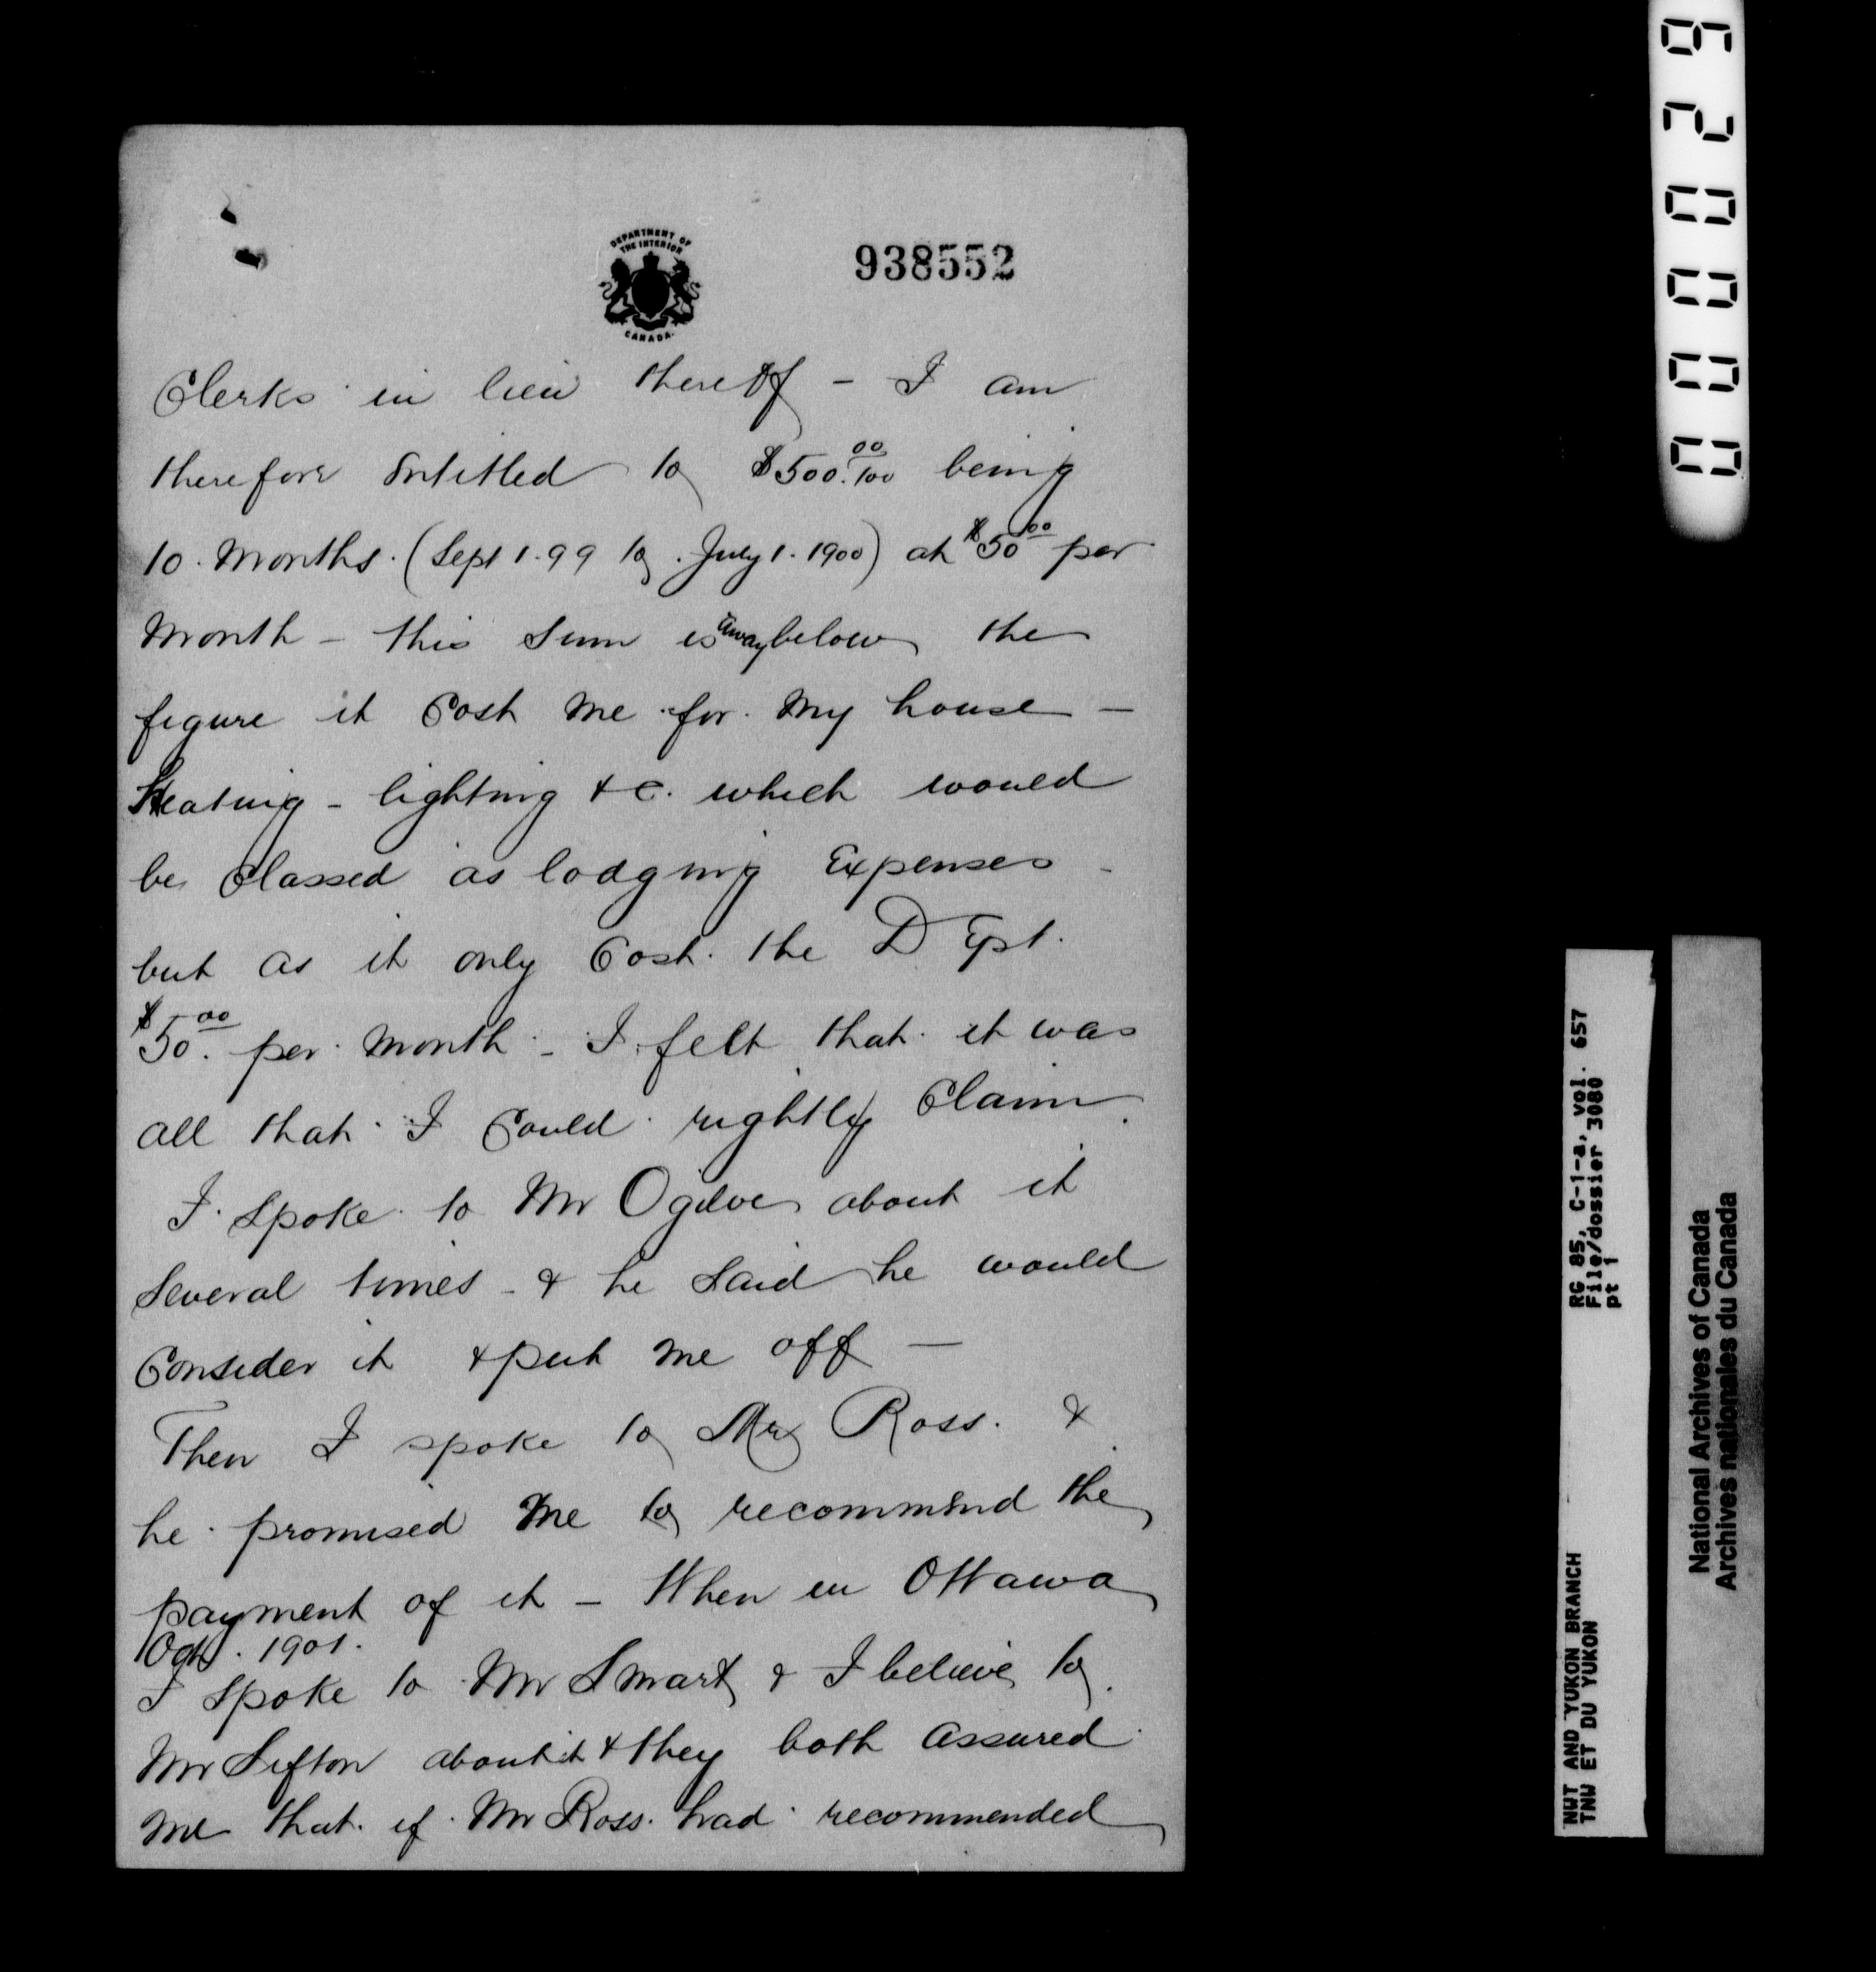 DEPARTMENT OF
THE INTERIOR
CANADA.
938552
Clerks in lieu thereof - I am
therefore entitled to $500.00/100 being
10. Months. (Sept 1. 99 to July 1. 1900) at $50.00 per
Month - this sum is away below the
figure it Cost me for my house -
Heating - lighting &c. which would
be Classed as lodging Expenses -
but as it only Cost the Dept.
$50.00 per month - I felt that it was
all that I Could rightly Claim.
I spoke to Mr Ogilvie about it
several times - & he said he would
Consider it & put me off -
Then I spoke to Mr Ross. &
he promised me to recommend the
payment of it - When in Ottawa
Oct. 1901.
I spoke to Mr Smart & I believe to
Mr Sifton about it & they both assured
me that if Mr Ross had recommended
000029
RG 85, C-1-a, vol. 657
File/dossier 3080
pt 1
NWT AND YUKON BRANCH
TNW ET DU YUKON
National Archives of Canada
Archives nationales du Canada